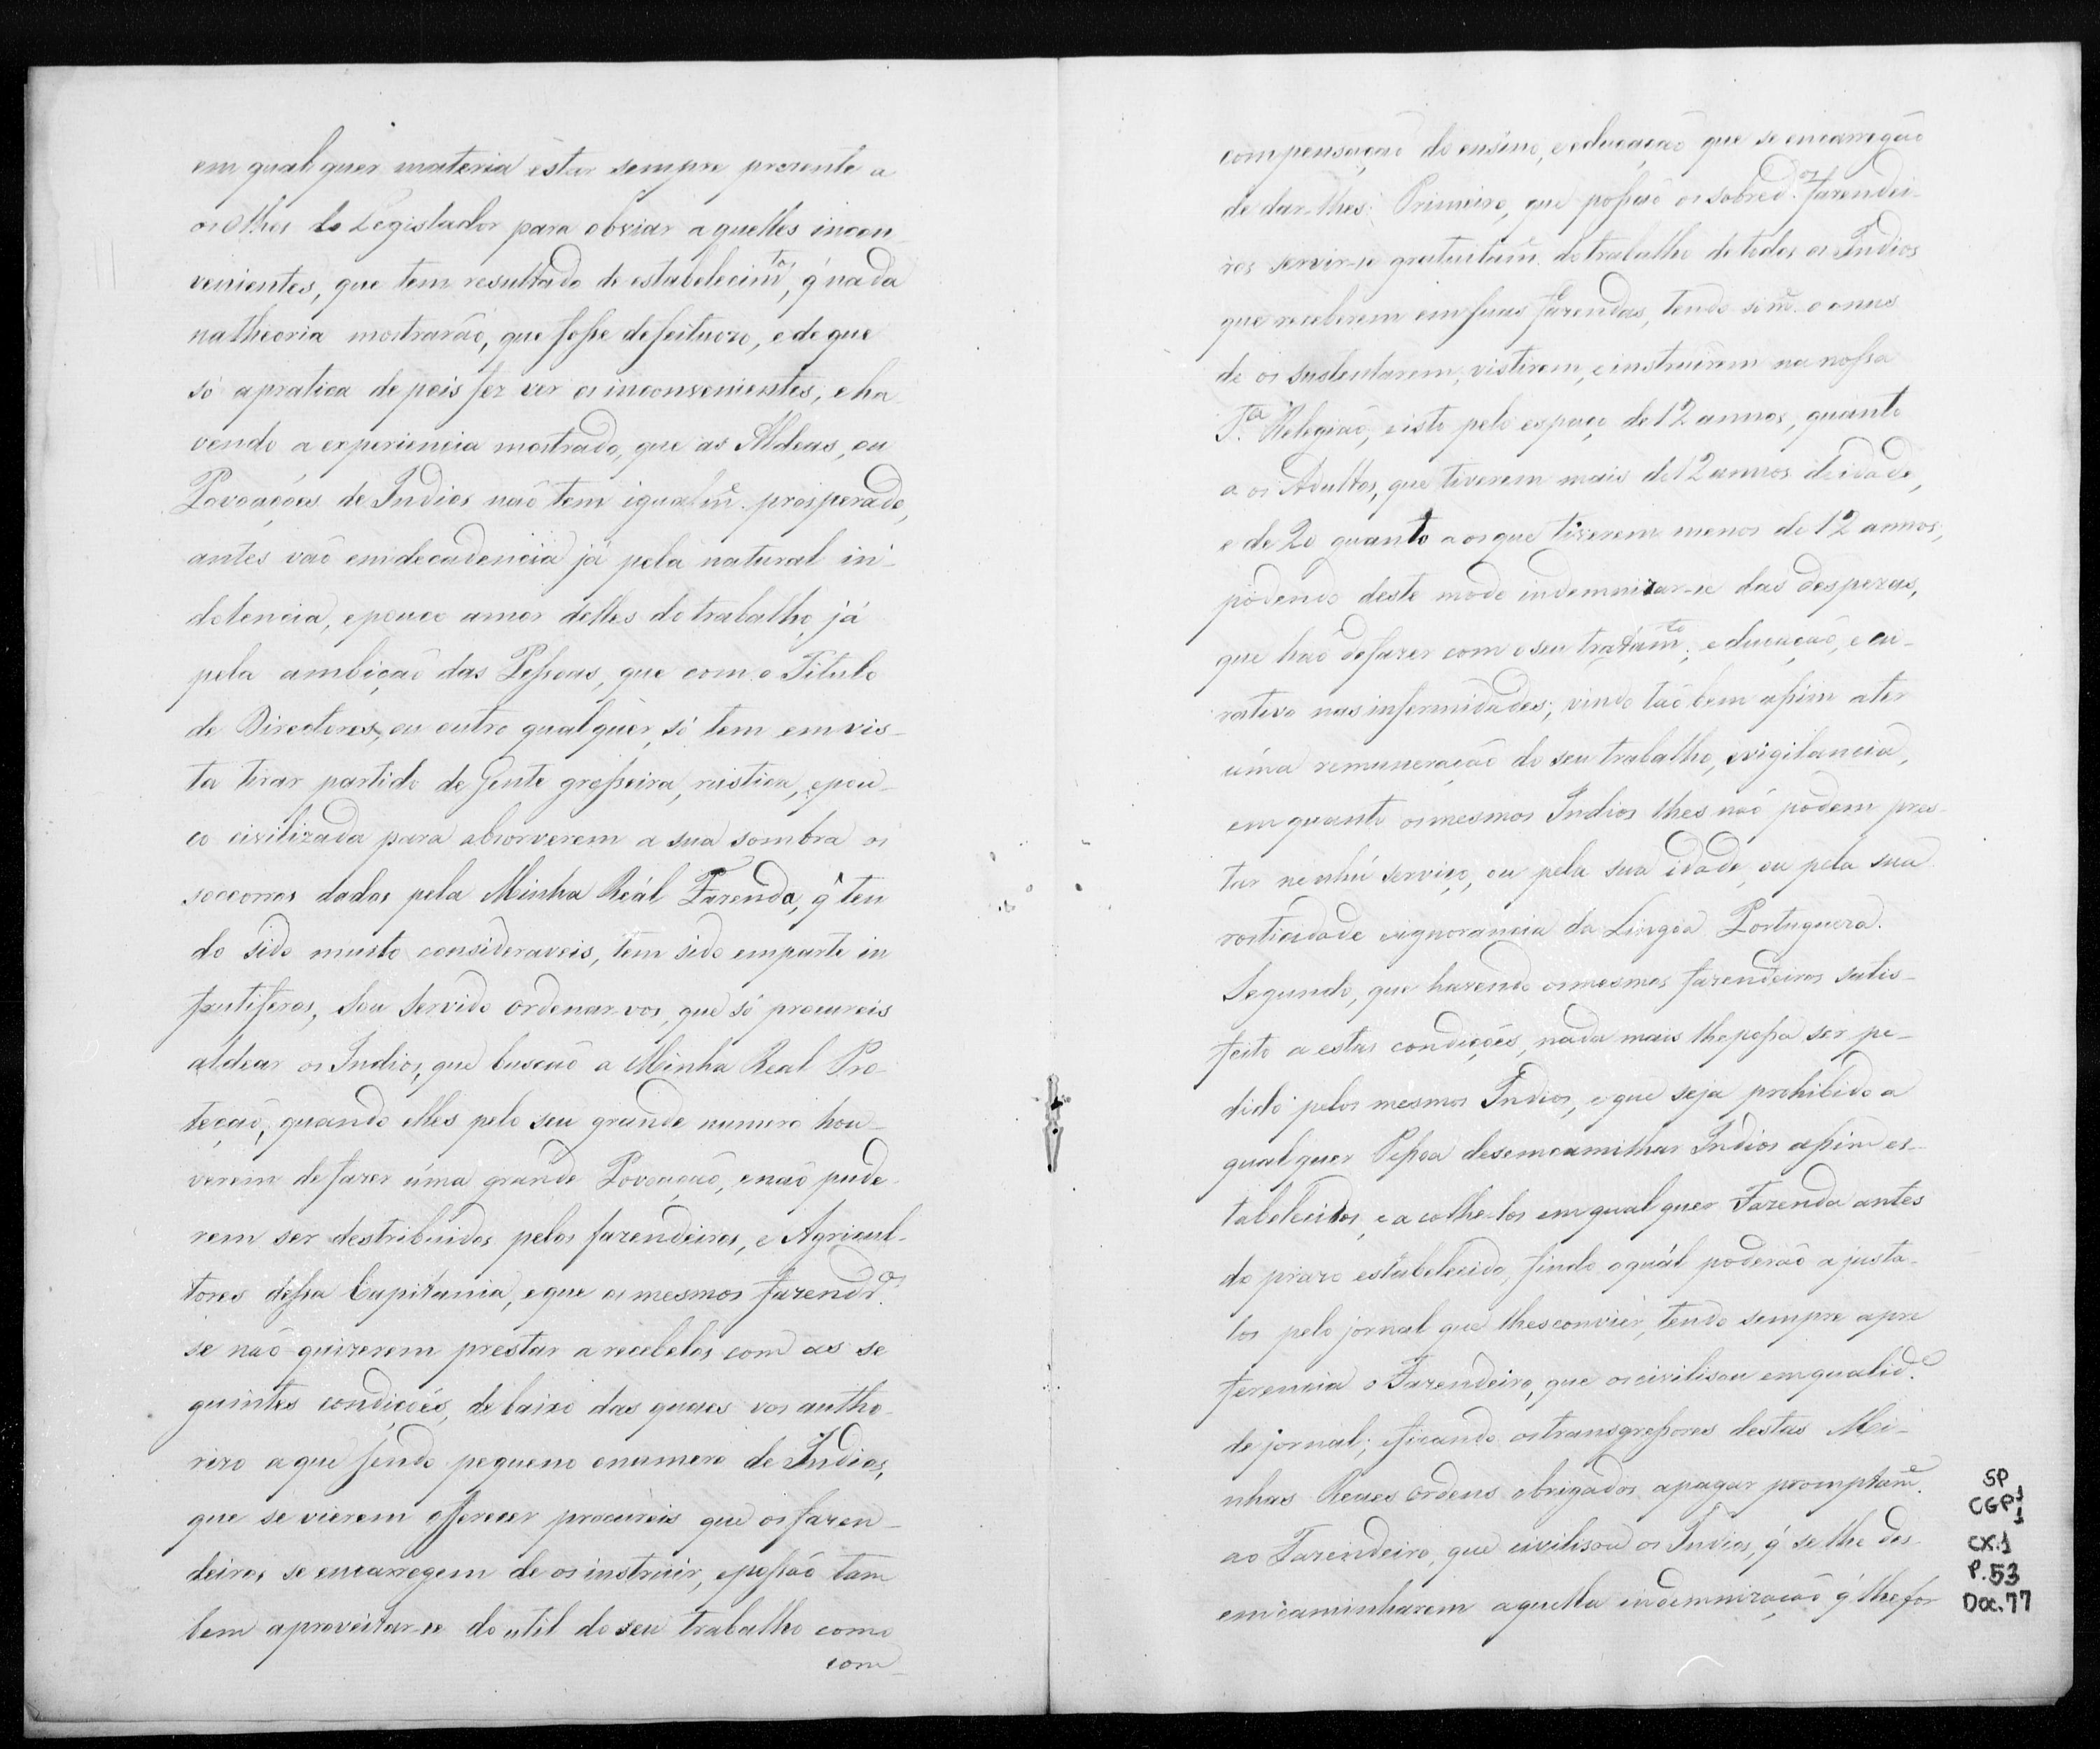 em qualquer materia estar sempre prezente a
os olhos do Legislador para obviar aquelles incon
venientes, que tem resultado de estabelecim.tos, q̃ nada
na theoria mostrarão, que fosse defeituozo, e de que
só a pratica depois fez ver os inconvenientes, e ha
vendo a experiencia mostrado, que as Aldeas, ou
Povoações de Indios não tem igualm.e prosperado,
antes vão em decadencia já pela natural in-
dolencia, e pouco amor delles do trabalho, já
pela ambição das Pessoas, que com o Titulo
de Directores, ou outro qualquer, só tem em vis-
ta tirar partido de Gente grosseira, rustica, e pou-
co civilizada para absorverem a sua sombra os
soccorros dados pela Minha Reál Fazenda, q̃ ten
do sido muito consideraveis, tem sido em parte in
frutiferos, Sou Servido Ordenar-vos, que só procureis
aldear os Indios, que buscão a Minha Real Pro-
teção, quando elles pelo seu grande numero hou-
verem de fazer úma grande Povoação, e não pude-
rem ser destribuidos pelos fazendeiros, e Agricul-
tores dessa Capitania, e que os mesmos fazendr.os
se não quizerem prestar a recebelos com as se
guintes condições, debaixo das quaes vos autho-
rizo a que sendo pequeno o numero de Indios,
que se vierem offerecer procureis que os fazen-
deiros se encarregem de os instruir, e possão tam
bem aproveitar-se do util do seu trabalho como
com-
compensação do ensino, e educação que se encarregão
de dar-lhes: Primeiro, que possão os sobred.os fazendei-
ros servir-se gratuitam.e do trabalho de todos os Indios
que receberem em suas fazendas, tendo som.e o onus
de os sustentarem, vistirem, e instruirem na nossa
S.ta Relegião, e isto pelo espaço de 12 annos, quanto
a os Adultos, que tiverem mais de 12 annos de idade,
e de 20 quanto aos que tiverem menos de 12 annos,
podendo deste modo indemnizar-se das despezas,
que hão de fazer com o seu tratam.to, educação, e cu-
rativo nas infermidades; vindo tão bem assim a ter
úma remuneração do seu trabalho, e vigilancia,
em quanto os mesmos Indios lhes não podem pres-
tar nenhú serviço, ou pela sua idade, ou pela sua
rusticidade e ignorancia da Lingoa Portugueza.
Segundo, que havendo os mesmos fazendeiros satis-
feito a estas condições, nada mais lhe possa ser pe-
dido pelos mesmos Indios, e que seja prohibido a
qualquer Pessoa desemcaminhar Indios assim es-
tabelecidos, e acolhe-los em qualquer Fazenda antes
do prazo estabelecido, findo o quál poderão ajusta-
los pelo jornal que lhes convier, tendo sempre a pre
ferencia o Fazendeiro, que os civilisou em qualid.e
de jornal; ficando os transgressores destas Mi-
nhas Reaes Ordens obrigados a pagar promptam.e
ao Fazendeiro, que civilisou os Indios, q̃ se lhe des-
emcaminharem aquella indemnização q̃ lhe for
SP
CGP1
1
CX.1
P.53
Doc.77